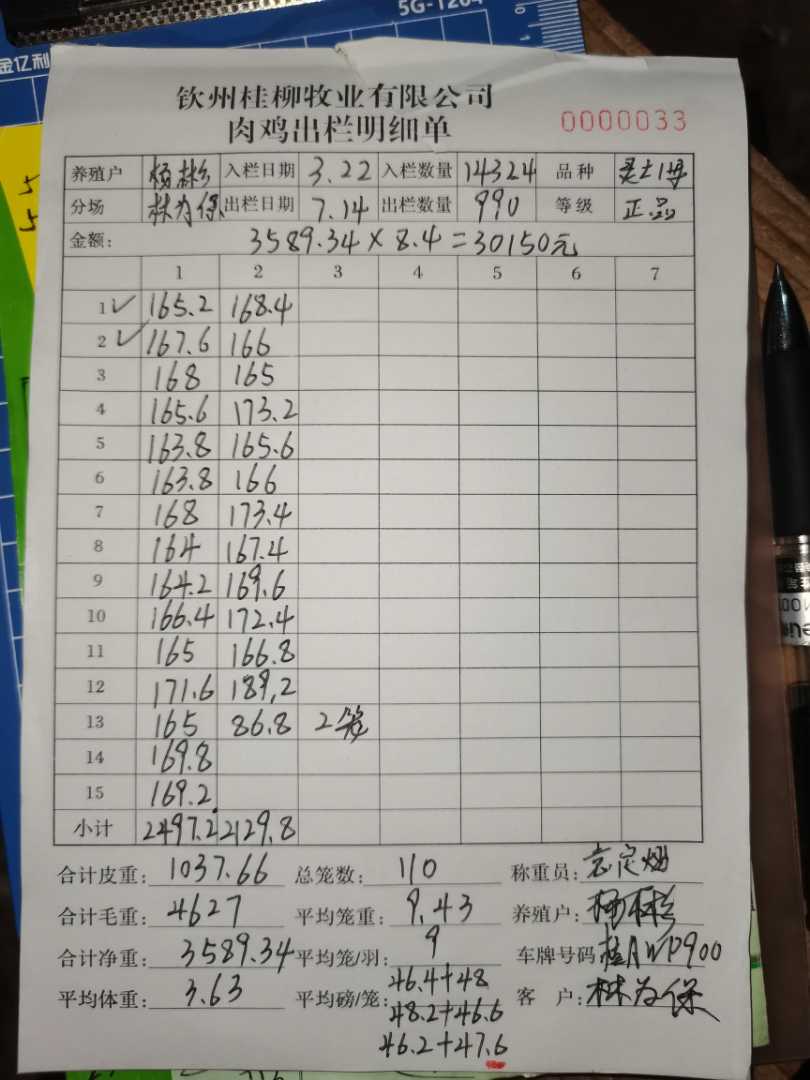 5G-1204
金亿利
钦州桂柳牧业有限公司
肉鸡出栏明细单
0000033
养殖户 杨彬 入栏日期 3.22 入栏数量 14324 品种
分场 林为保 出栏日期 7.14 出栏数量 990 等级 正品
金额: 3589.34×8.4=30150元
1 2 3 4 5 6 7
1✓ 165.2 168.4
2✓ 167.6 166
3 168 165
4 165.6 173.2
5 163.8 165.6
6 163.8 166
7 168 173.4
8 164 167.4
9 164.2 169.6
10 166.4 172.4
11 165 166.8
12 171.6 189,2
13 165 86.8 2笼
14 169.8
15 169.2
小计 2497.2 2129.8
合计皮重: 1037.66 总笼数: 110 称重员:
合计毛重: 4627 平均笼重: 9.43 养殖户: 杨彬
合计净重: 3589.34 平均笼/羽: 9 车牌号码: 桂AWP900
平均体重: 3.63 平均磅/笼: 46.4+48 客 户: 林为保
48.2+46.6
46.2+47.6